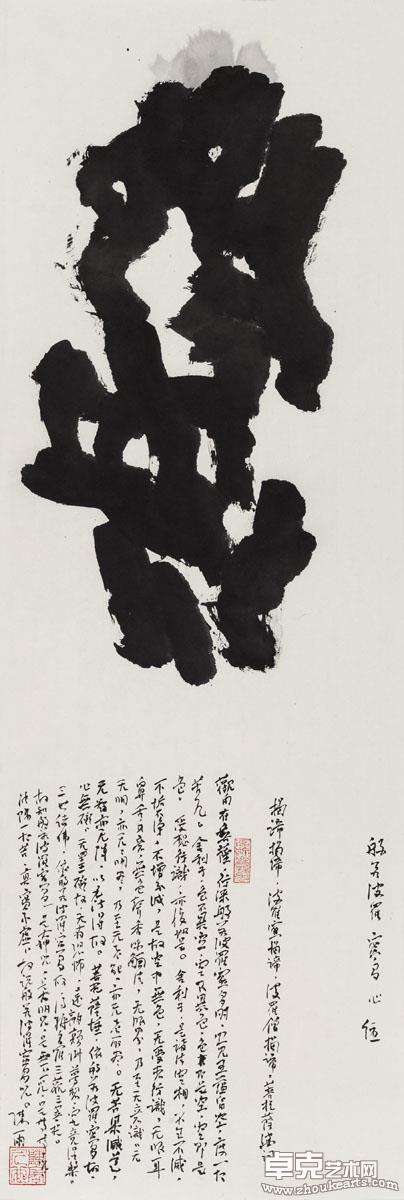 般若波羅蜜多心經
揭諦揭諦，波羅揭諦，波羅僧揭諦，菩提薩婆
觀自在菩薩，行深般若波羅蜜多時，照見五蘊皆空，度一切
苦厄。舍利子，色不異空，空不異色，色即是空，空即是
色，受想行識，亦復如是。舍利子，是諸法空相，不生不滅，
不垢不淨，不增不減，是故空中無色，无受想行識，无眼耳
鼻舌身意，无色聲香味觸法，无眼界，乃至无意識界。无
无明，亦无无明盡，乃至无老死，亦无老死盡。无苦集滅道，
无智亦无得，以无所得故。菩提薩埵，依般若波羅蜜多故，
心無礙。无罣礙故，无有恐怖，遠離顛倒夢想，究竟涅槃。
三世諸佛，依般若波羅蜜多故，得三藐三菩提。
故知般若波羅蜜多，是大神咒，是大明咒，是無上咒，
能除一切苦，真實不虛，故說般若波羅蜜多咒。
卓克艺术网
www.zhoukeart.com